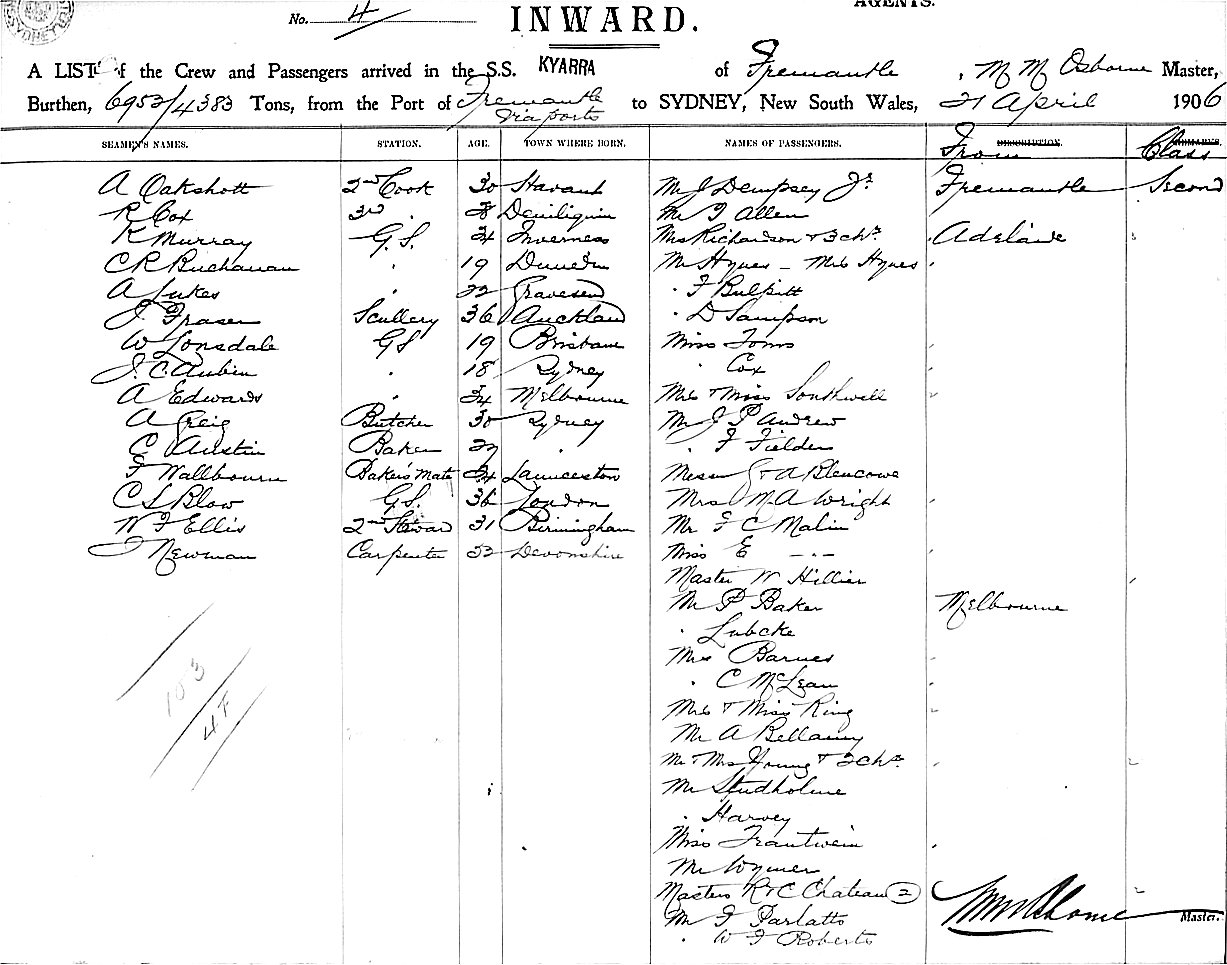 AGENTS.
No. 4
INWARD.
A LIST of the Crew and Passengers arrived in the S.S. KYARRA of Fremantle, M M Osborne Master,
Burthen, 6953/4383 Tons, from the Port of Fremantle via ports to SYDNEY, New South Wales, 21 April 1906
SEAMEN'S NAMES. STATION. AGE. TOWN WHERE BORN. NAMES OF PASSENGERS. From Class
A Oakshott 2nd Cook 30 Havant Mr J Dempsey Jr Fremantle Second
R Cox 3rd " Deniliquin Mr T Allen
K Murray G.S. 24 Inverness Mrs Richardson & 3 chn Adelaide
C R Buchanan " 19 Dunedin Mr Hynes - Mrs Hynes
A Lukes " 22 Gravesend " F Bulpitt
J. Fraser Scullery 36 Auckland " D Sampson
W Lonsdale GS 19 Brisbane Miss Toms
J. C. Aubin " 18 Sydney " Cox
A Edwards " 34 Melbourne Mrs & Miss Southwell
A Greig Butcher 30 Sydney Mr J P Andrew
C Austin Baker 27 " " F Fielder
F Wallbourn Baker's Mate 24 Launceston Messrs G & A Blencowe
C S Blow G.S. 36 London Mrs M A Wright
W F Ellis 2nd Steward 31 Birmingham Mr F C Malin
J Newman Carpenter 52 Devonshire Miss E -"-
Master W Hillier
Mr P Baker Melbourne
" Lubcke
Mrs Barnes
" C McLean
Mrs & Miss King
Mr A Bellamy
Mr & Mrs Young & 3 chn
Mr Studholme
" Harvey
Miss Trautwein
Mr Wymer
Masters R & C Chateau 2
Mr F Parlatto
" W F Roberts
Master.
103
4F